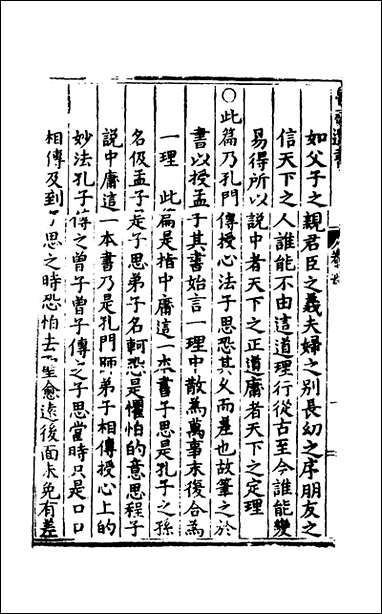 如父子之親君臣之義夫婦之別長幼之序朋友之
信天下之人誰能不由這道理行從古至今誰能變
易得所以說中者天下之正道庸者天下之定理
○此篇乃孔門傳授心法子思恐其久而差也故筆之於
書以授孟子其書始言一理中散為萬事末後合為
一理 此篇是指中庸這一本書子思是孔子之孫
名伋孟子是子思弟子名軻恐是懼怕的意思程子
說中庸這一本書乃是孔門師弟子相傳授心上的
妙法孔子傳之曾子曾子傳之子思當時只是口口
相傳及到子思之時恐怕去聖愈遠後面未免有差